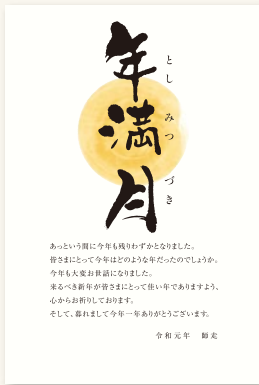 年満月
としみつづき
あっという間に今年も残りわずかとなりました。
皆さまにとって今年はどのような年だったのでしょうか。
今年も大変お世話になりました。
来るべき新年が皆さまにとって佳い年でありますよう、
心からお祈りしております。
そして、暮れまして今年一年ありがとうございます。
令和元年　師走